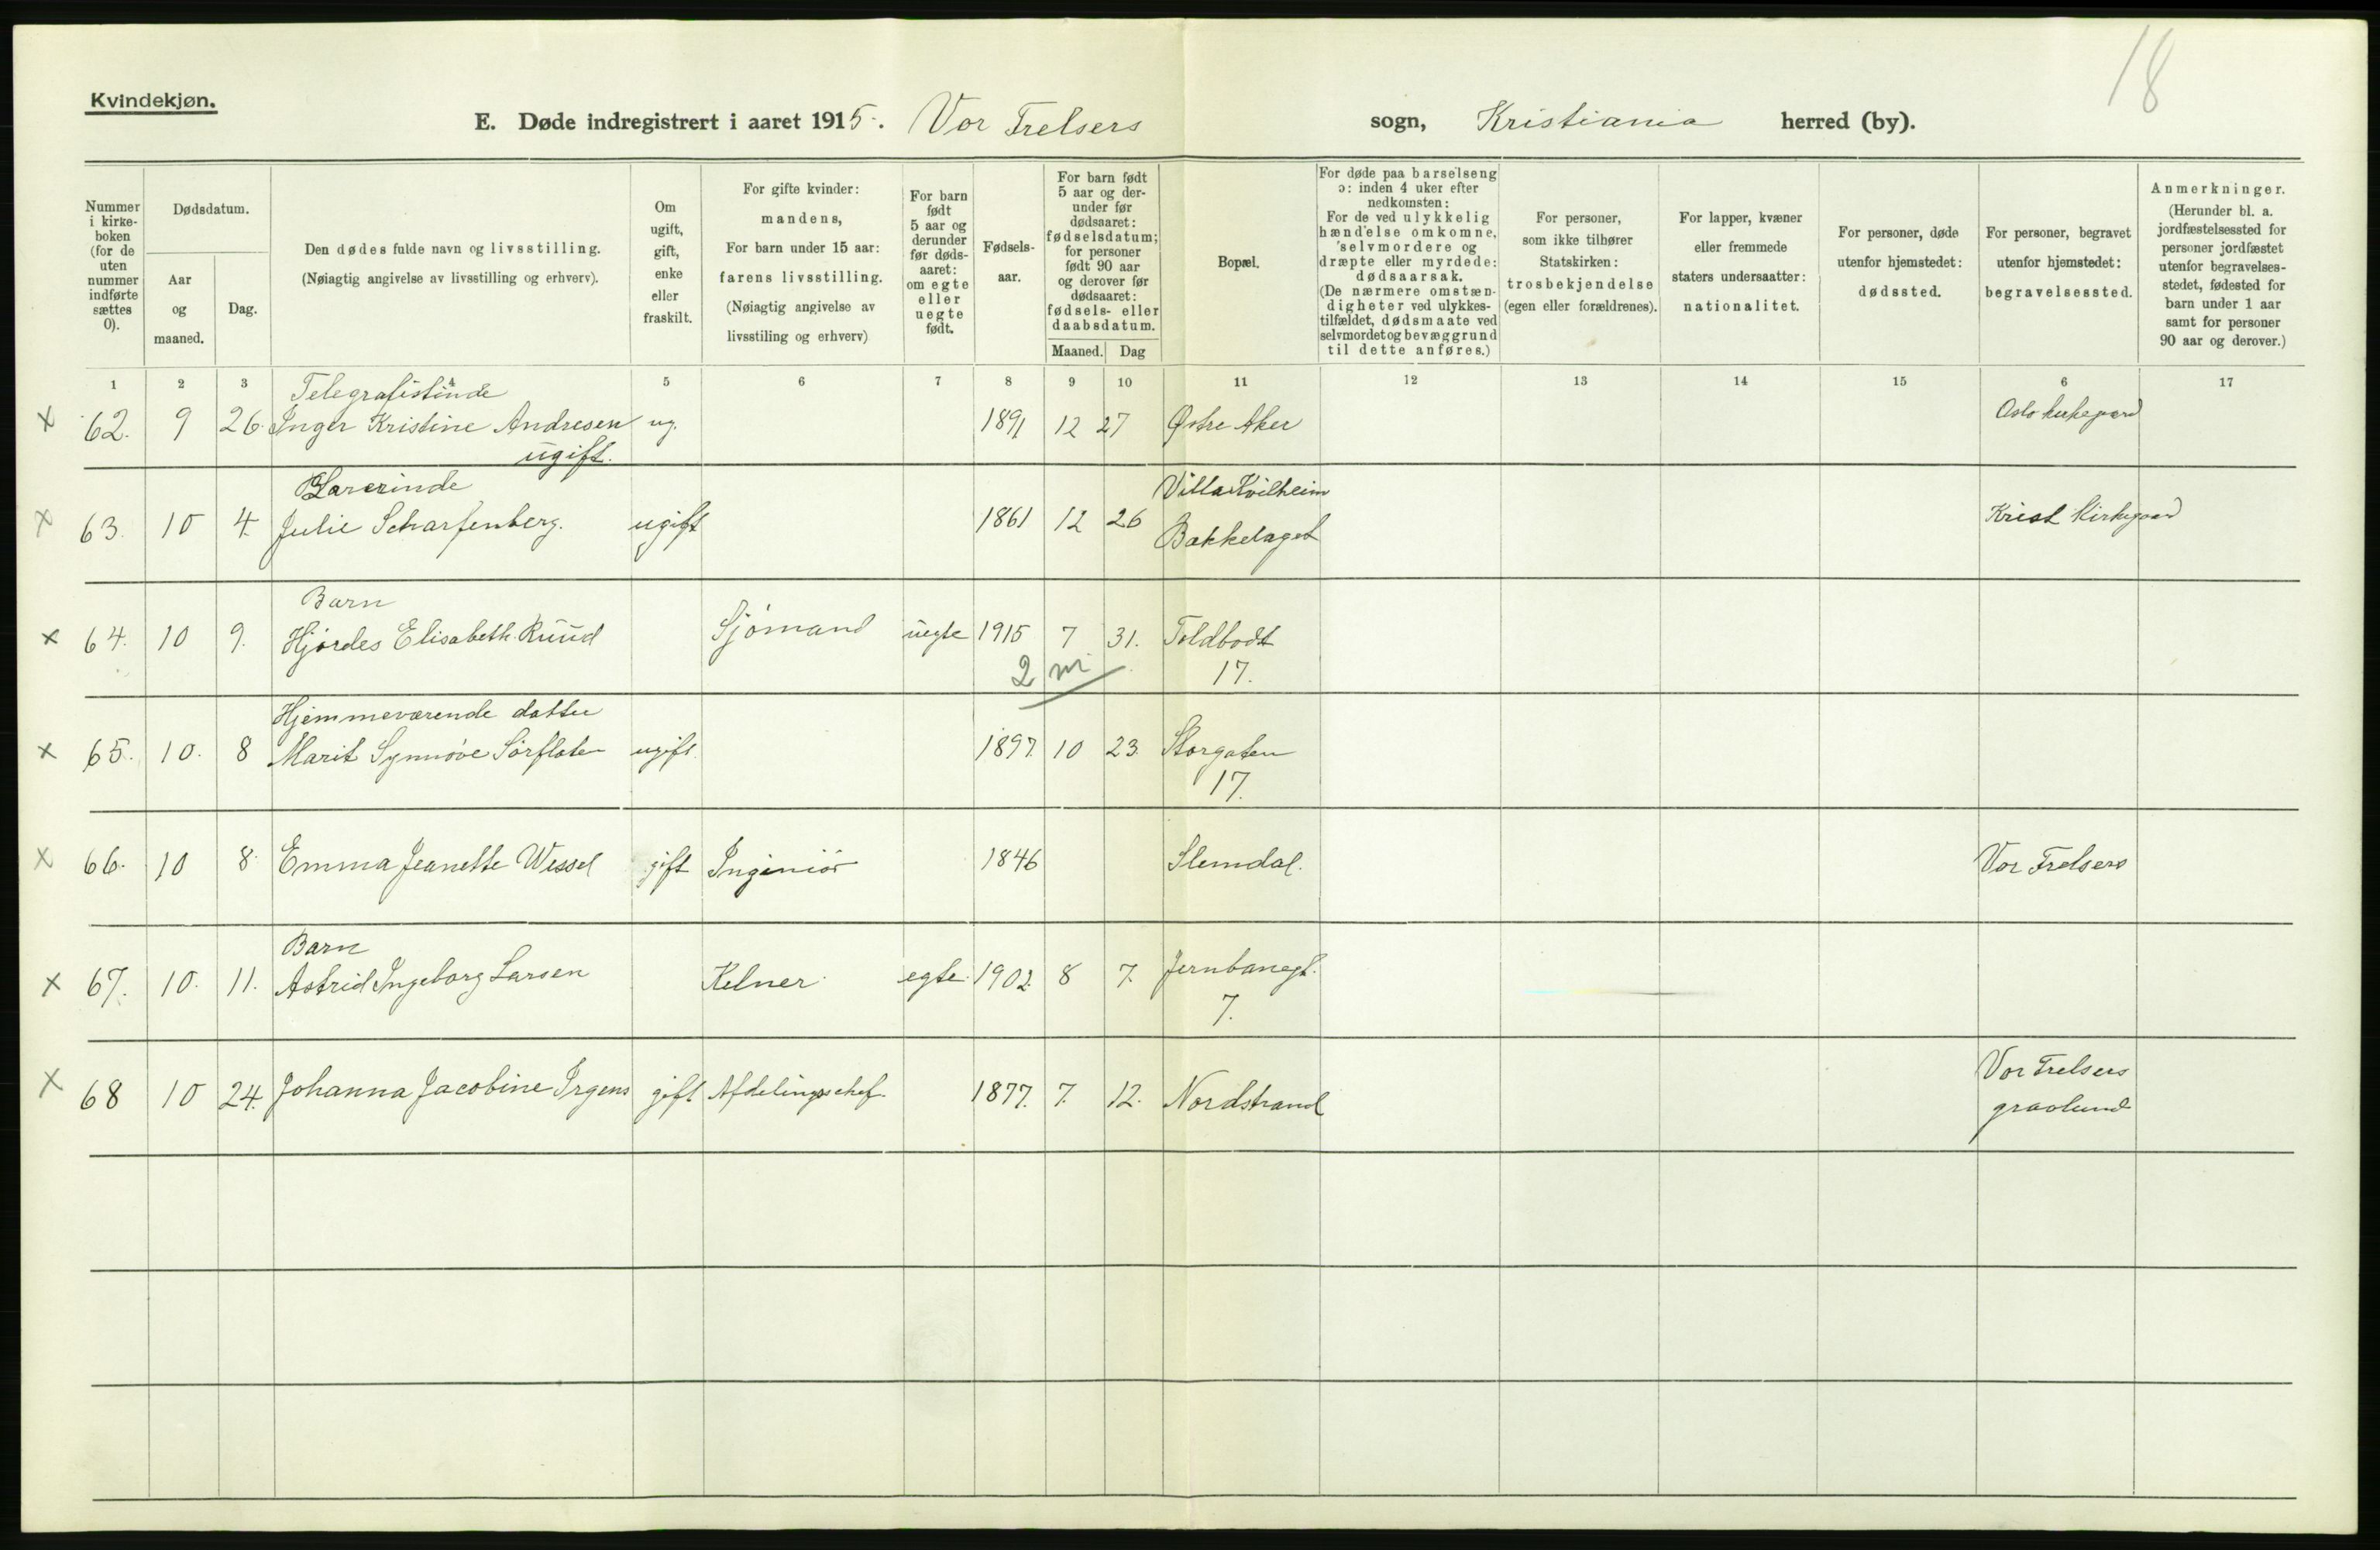 18
Kvindekjøn.
E. Døde indregistrert i aaret 1915. Vor Frelsers sogn, Kristiania herred (by).
Nummer i kirke-boken (for de uten nummer indførte sættes 0).
Dødsdatum.
Aar og maaned.
Dag.
Den dødes fulde navn og livsstilling.
(Nøiagtig angivelse av livsstilling og erhverv).
Om ugift, gift, enke eller fraskilt.
For gifte kvinder: mandens,
For barn under 15 aar: farens livsstilling.
(Nøiagtig angivelse av livsstiling og erhverv)
For barn født 5 aar og derunder før døds-aaret: om egte eller uegte født.
Fødsels-aar.
For barn født 5 aar og der-under før dødsaaret: fødselsdatum; for personer født 90 aar og derover før dødsaaret: fødsels- eller daabsdatum.
Maaned. Dag
Bopæl.
For døde paa barselseng ɔ: inden 4 uker efter nedkomsten: For de ved ulykkelig hændelse omkomne, selvmordere og dræpte eller myrdede: dødsaarsak. (De nærmere omstæn-digheter ved ulykkes-tilfældet, dødsmaate ved selvmordet og bevæggrund til dette anføres.)
For personer, som ikke tilhører Statskirken: trosbekjendelse (egen eller forældrenes).
For lapper, kvæner eller fremmede staters undersaatter: nationalitet.
For personer, døde utenfor hjemstedet: dødssted.
For personer, begravet utenfor hjemstedet: begravelsessted.
Anmerkninger. (Herunder bl. a. jordfæstelsessted for personer jordfæstet utenfor begravelses-stedet, fødested for barn under 1 aar samt for personer 90 aar og derover.)
1 2 3 5 6 7 8 9 10 11 12 13 14 15 6 17
Telegrafistinde
x 62. 9 26. Inger Kristine Andresen ug. 1891 12 27 Østre Aker Oslo kirkegaard
ugift.
Lærerinde Villa Kvilheim
x 63. 10 4. Julie Scharfenberg. ugift 1861 12 26 Bækkelaget Krist Kirkegaard
Barn
x 64. 10 9. Hjørdes Elisabeth Ruud Sjömand uegte 1915 7 31. Toldbodt
2 m 17.
Hjemmeværende datter
x 65. 10. 8 Marit Synnöve Sörflaten ugift 1897. 10 23. Storgaten
17.
x 66. 10 8. Emma Jeanette Wessel gift Ingeniör 1846 Slemdal. Vor Frelsers
Barn
x 67. 10. 11. Astrid Ingeborg Larsen Kelner egte 1902. 8 7. Jernbanegt.
7.
Vor Frelsers
x 68 10 24. Johanna Jacobine Irgens gift Afdelingschef. 1877. 7. 12. Nordstrand gravlund